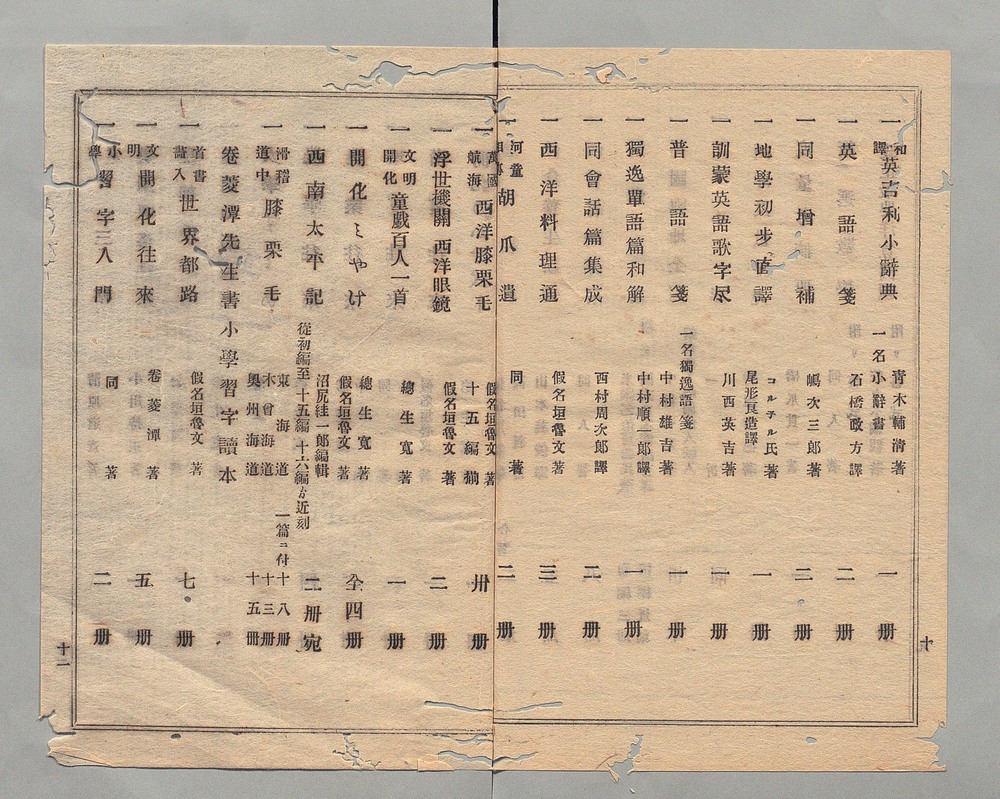 一 和譯 英吉利小辭典 一名小辭書 青木輔清著 一册
一 英語箋 石橋政方譯 二册
一 同 增補 嶋次三郎著 二册
一 地學初步直譯 コルチル氏著 尾形良造譯 一册
一 訓蒙英語歌字尽 川西英吉著 一册
一 普語箋 一名獨逸語箋 中村雄吉著 一册
一 獨逸單語篇和解 中村順一郎譯 一册
一 同會話篇集成 西村周次郎譯 二册
一 西洋料理通 假名垣魯文著 三册
一 河童 胡瓜遣 同著 二册
一 萬國航海 西洋膝栗毛 假名垣魯文著 十五編揃 卅册
一 浮世機關 西洋眼鏡 假名垣魯文著 二册
一 文明開化 童戲百人一首 總生寬著 一册
一 開化ミやけ 總生寬著 假名垣魯文著 全四册
一 西南太平記 沼尻絓一郎編輯 從初編至十五編 十六編ゟ近刻 一篇ニ付 二册宛
一 滑稽道中 膝栗毛 東海道 十八册 木曾海道 十三册 奧州海道 十五册
卷菱潭先生書小學習字讀本
一 首書 世界都路 假名垣魯文著 七册
一 文明 開化往來 卷菱潭著 五册
一 小學 習字入門 同著 二册
十
十一